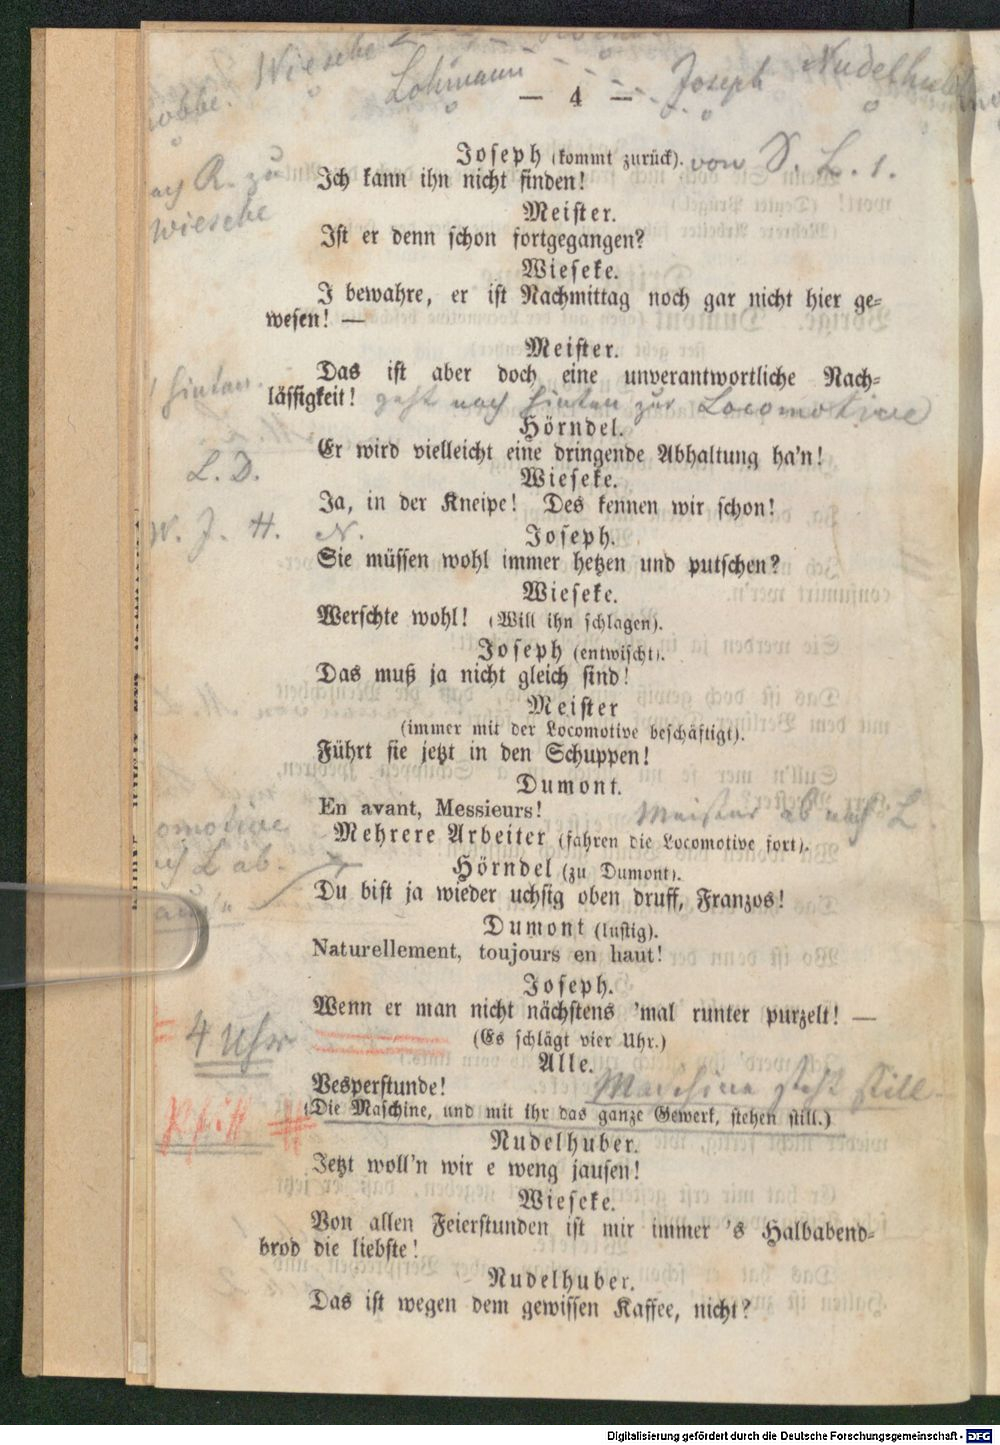 Wiesecke
Lohmann
Joseph Nudelhuber
— 4 —
Joseph (kommt zurück). von S. L. 1.
Ich kann ihn nicht finden!
R. zu
Wiesecke
Meister.
Ist er denn schon fortgegangen?
Wieseke.
I bewahre, er ist Nachmittag noch gar nicht hier ge-
wesen! —
Meister.
Das ist aber doch eine unverantwortliche Nach-
hinten.
lässigkeit! geht nach hinten zur Locomotive
Hörndel.
Er wird vielleicht eine dringende Abhaltung ha'n!
L. D.
Wieseke.
Ja, in der Kneipe! Des kennen wir schon!
W. J. H. N.
Joseph.
Sie müssen wohl immer hetzen und putschen?
Wieseke.
Werschte wohl! (Will ihn schlagen).
Joseph (entwischt).
Das muß ja nicht gleich sind!
Meister
(immer mit der Locomotive beschäftigt).
Führt sie jetzt in den Schuppen!
Dumont.
En avant, Messieurs! Meister ab nach L.
omotive
Mehrere Arbeiter (fahren die Locomotive fort).
L ab.
Hörndel (zu Dumont).
Du bist ja wieder uchsig oben druff, Franzos!
Dumont (lustig).
Naturellement, toujours en haut!
Joseph.
Wenn er man nicht nächstens 'mal runter purzelt! —
4 Uhr
(Es schlägt vier Uhr.)
Alle.
Vesperstunde! Maschine steht still.
(Die Maschine, und mit ihr das ganze Gewerk, stehen still.)
Pfiff
Nudelhuber.
Jetzt woll'n wir e weng jausen!
Wieseke.
Von allen Feierstunden ist mir immer 's Halbabend-
brod die liebste!
Nudelhuber.
Das ist wegen dem gewissen Kaffee, nicht?
Digitalisierung gefördert durch die Deutsche Forschungsgemeinschaft - DFG